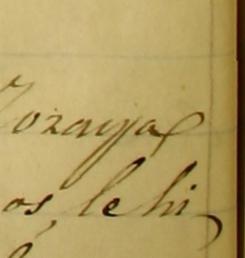 Zozaya
os, le hi